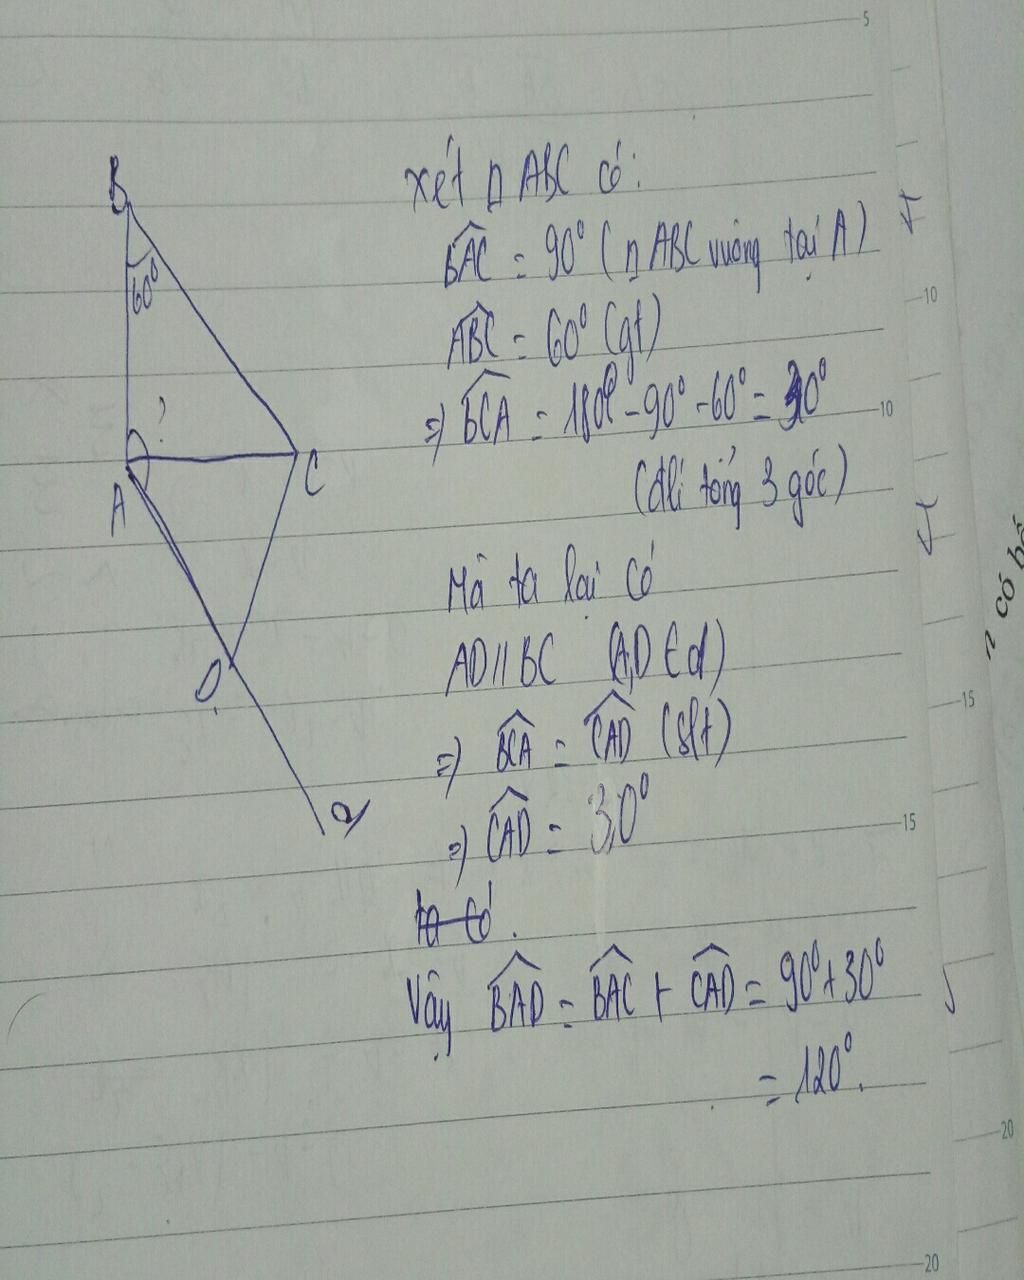 B
60°
?
A
C
D
d
xét △ABC có:
BAC = 90° (△ABC vuông tại A)
ABC = 60° (gt)
=> BCA = 180° - 90° - 60° = 30°
(đlí tổng 3 góc)
Mà ta lại có
AD // BC (A,D ∈ d)
=> BCA = CAD (slt)
=> CAD = 30°
ta có.
Vậy BAD = BAC + CAD = 90° + 30°
= 120°.
5
10
10
15
15
20
20
có